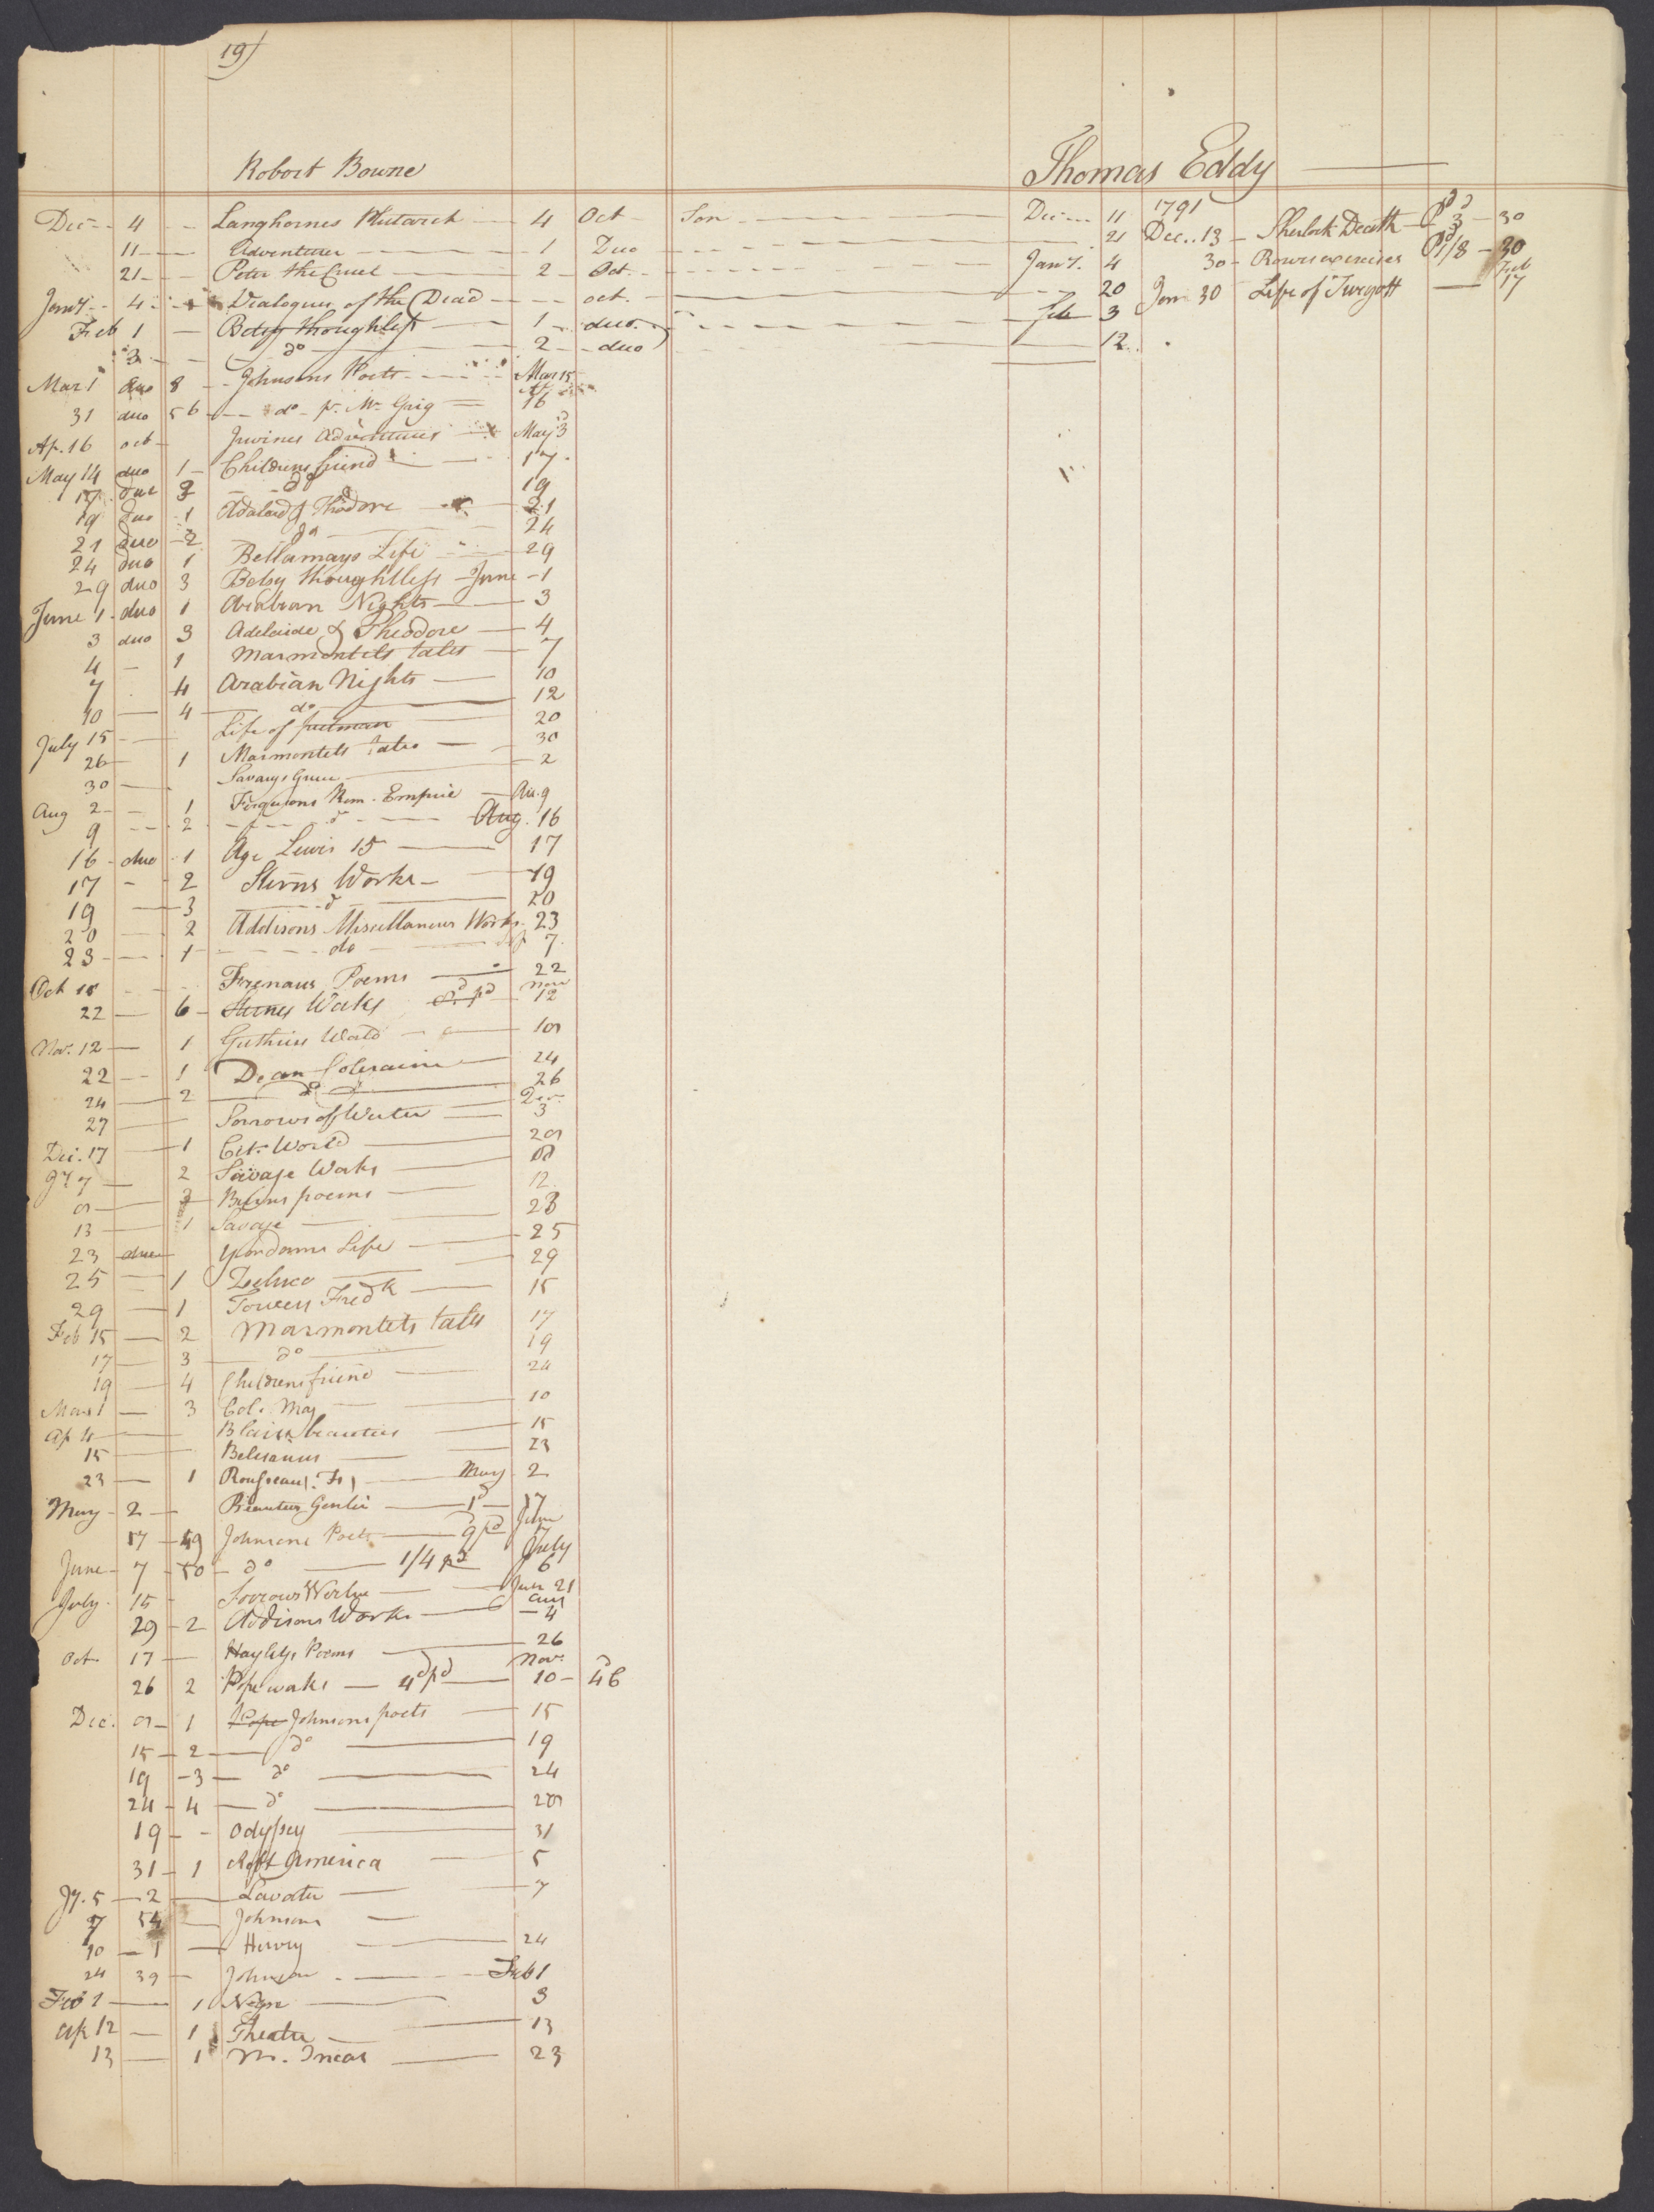 19)
Robert Bowne
Dec 4 Langhornes Plutarch 4 Oct Son Dec 11
11 Adventurer 1 Duo 21
21 Peter the Cruel 2 Oct. Jany. 4
Jany 4 Dialogues of the Dead oct. 20
Feb 1 Betsy thoughtless 1 duo. Feb 3
3 do 2 duo 12
Mar 1 duo 8 Johnsons Poets Mar 15
31 duo 56 do pr. Mr. Grig Ap 16
Ap. 16 oct Irvines Adventures May 3
May 14 duo 1 Childrens friend 17
17 duo 2 do 19
19 duo 1 Adalaid & Thodore 21
21 duo 2 do 24
24 duo 1 Bellamays Life 29
29 duo 3 Betsy thoughtless June 1
June 1 duo 1 Arabian Nights 3
3 duo 3 Adelaide & Theodore 4
4 1 Marmontels tales 7
7 4 Arabian Nights 10
10 4 do 12
July 15 Life of 20
26 1 Marmontels tales 30
30 Savarys Greece 2
Aug 2 1 Fergusons Rom. Empire Au. 9
9 2 d Aug. 16
16 duo 1 Age Lewis 15 17
17 2 Sterns Works 19
19 3 d 20
20 2 Addisons Miscellaneous Works 23
23 1 do Sep 7
Oct 18 Frenaus Poems 22
22 6 Sternes Works pd Nov 12
Nov. 12 1 Guthries World
22 1 Dean Coleraine 24
24 2 do 26
27 Sorrows of Werter Dec. 3
Dec. 17 1 Cit. World
Jy 7 2 Savage Works
Burns poems 12
13 1 Savage 23
23 duo Yorndams Life 25
25 1 Zeluco 29
29 1 Towers Fredk 15
Feb 15 2 Marmontels tales 17
17 3 do 19
19 4 Childrens friend 24
Mar 1 3 Col. Mag 10
Ap 4 Blairs beauties 15
15 Belisarius 23
23 1 Rousseau May 2
May 2 Beauties Genlis 1d 17
17 49 Johnsons Poets 9 pd June 7
June 7 50 do 1/4 pd July 6
July 15 Sorrows Werter June 21
29 2 Addisons Works Aug 4
Oct 17 Hayleys Poems 26
26 2 Pope works 4d pd Nov. 10 d 46
Dec. 1 Pope Johnsons poets 15
15 2 do 19
19 3 do 24
24 4 do
19 Odyssey 31
31 1 Robt America 5
Jy. 5 2 Lavater 7
7 54 Johnsons
10 1 Hervey 24
24 39 Johnson Feb 1
Feb 1 1 3
Ap 12 1 Theatre 13
13 1 M. Incas 23
Thomas Eddy
1791
Dec.. 13 Sherlock Death Pd 3 30
30 Rowes exercises Pd 1/8 30
Jan 30 Life of Turgott Feb 17